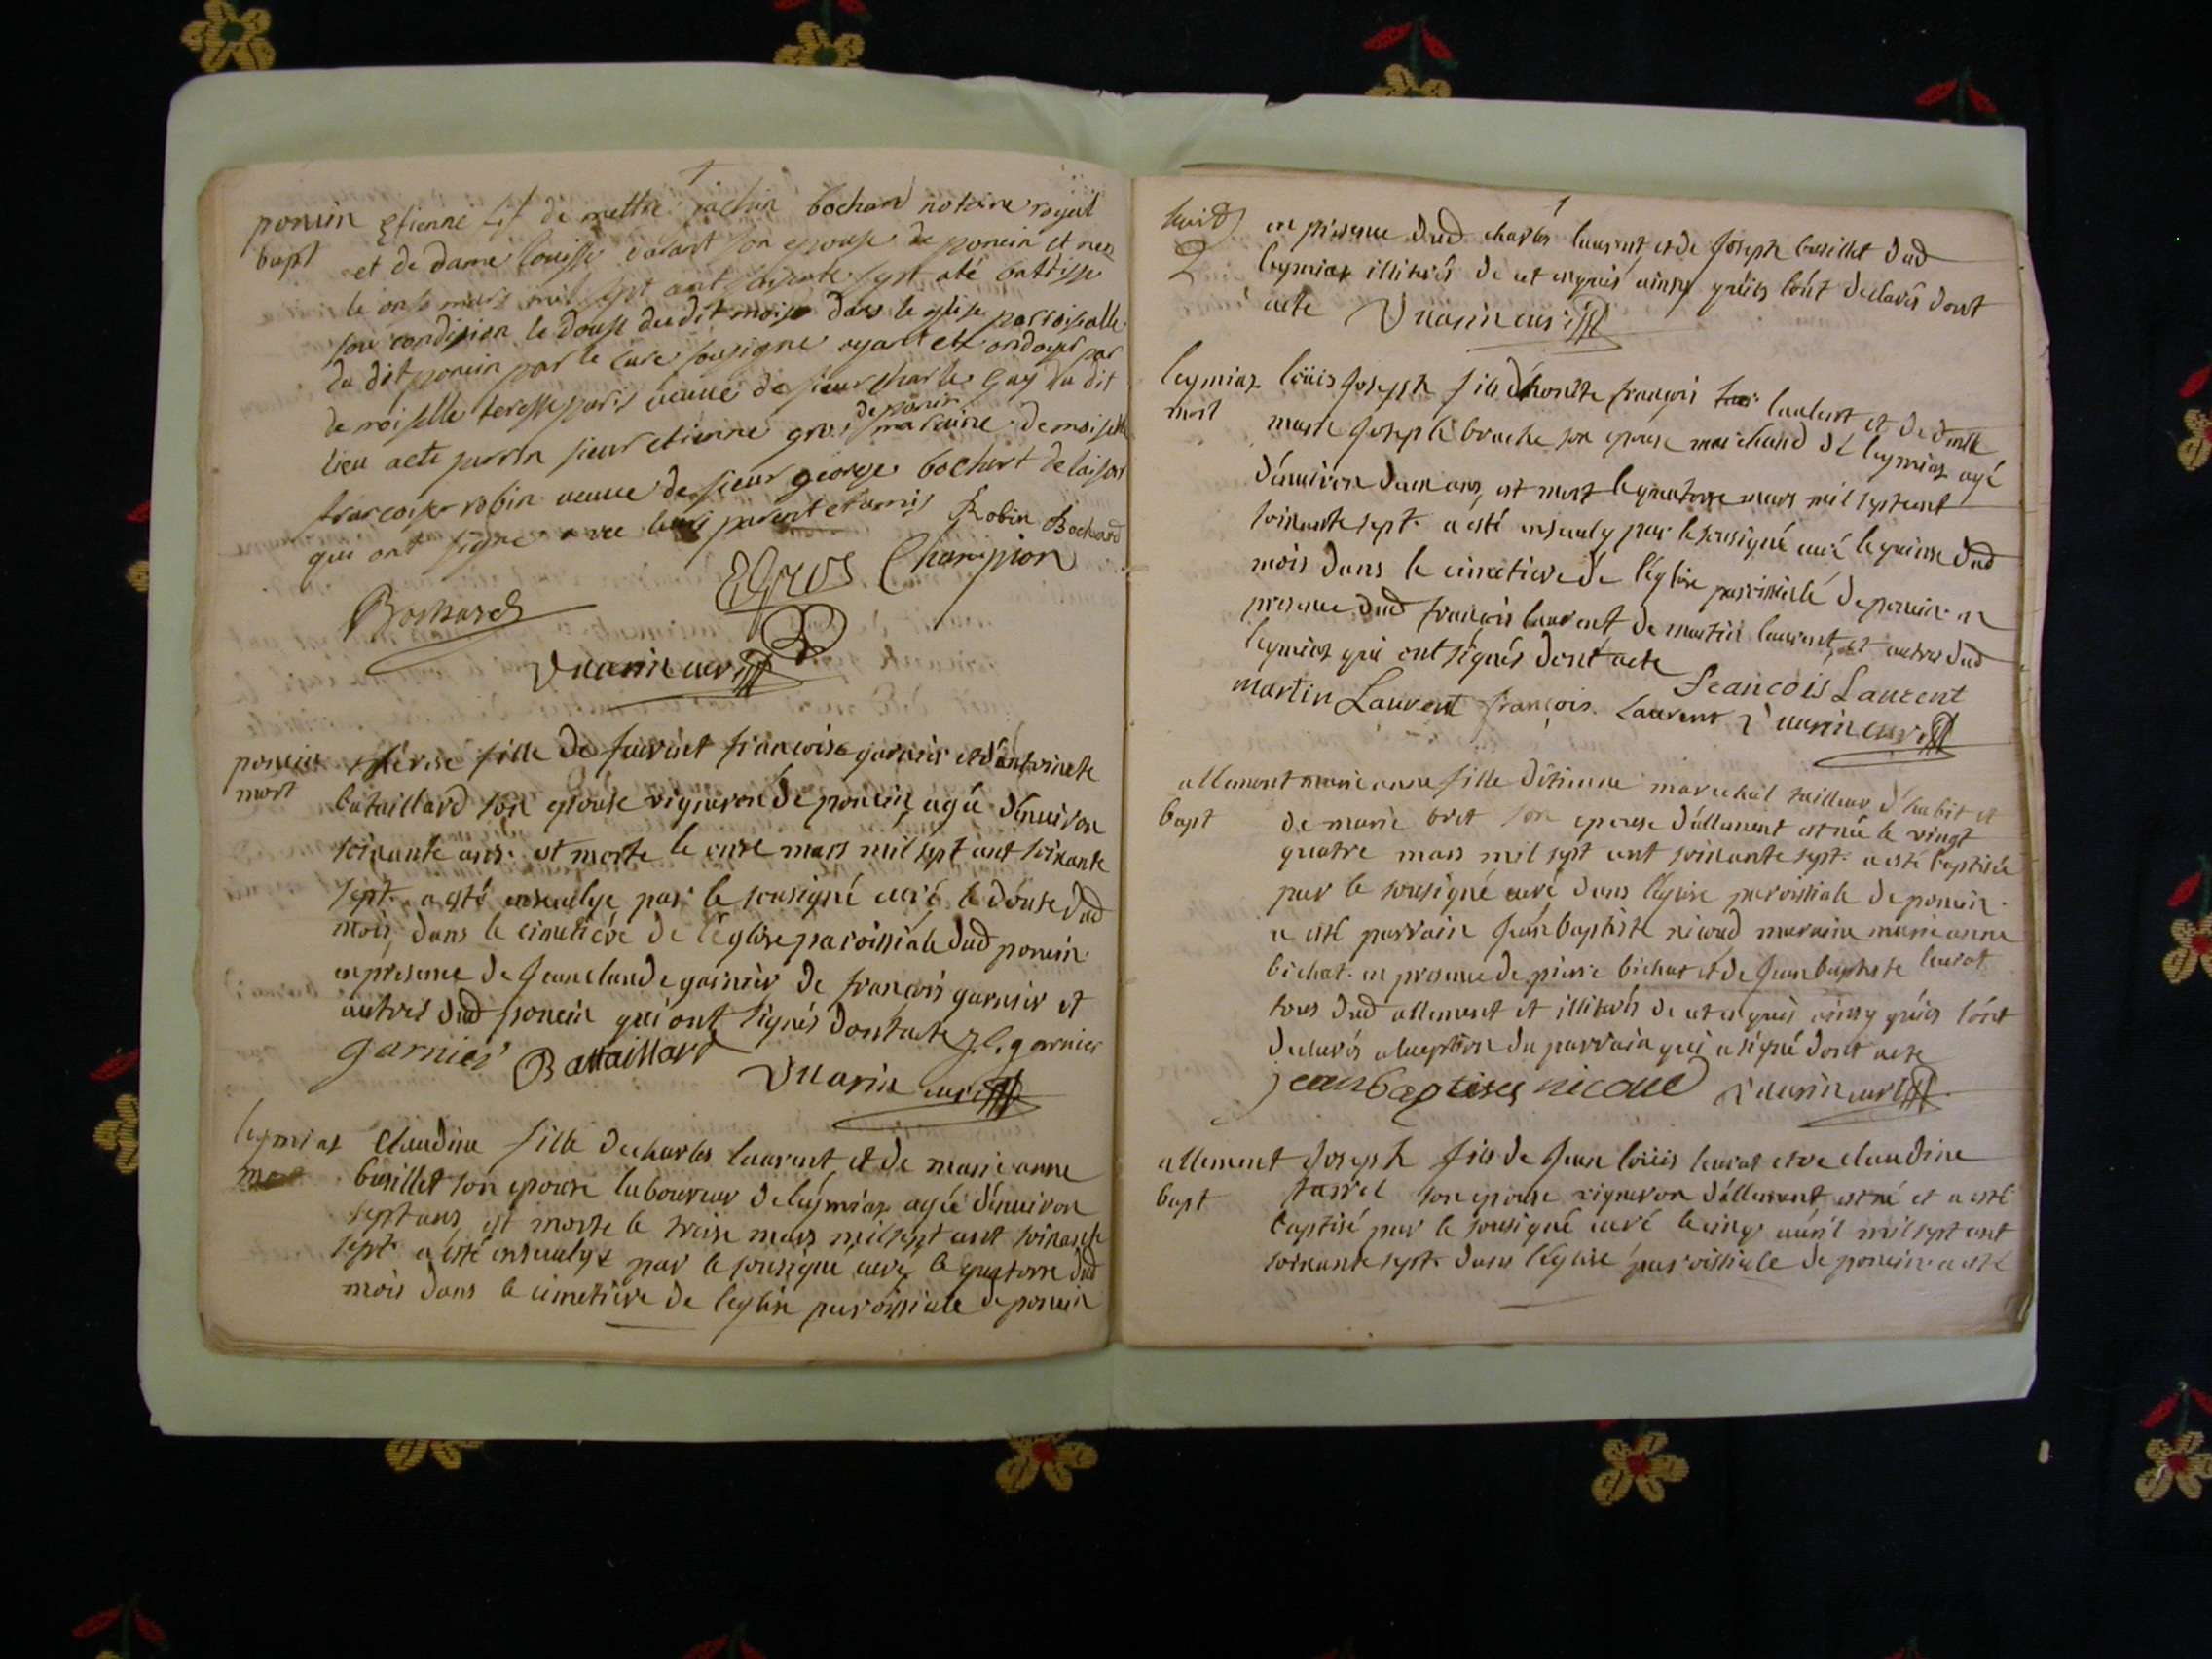 1
poncin Etienne de mettre bochard notaire royal
bapt et de dame louisse son epouse de poncin et nez
le onse mars mil sept cent soisente sept até battisse
sou condision le douse du dit moise dans le glise parroisialle
du dit poncin par le cure sousigne ayant ete ondoyer par
de moiselle teresse paris veuve de sieur charles Guy du dit
de poncin
lieu acte parrin sieur etienne gros maraine demoiselle
francoise robin veuve de sieur george bochart
qui ont signe avec leurs parent et amis Robin Bochard
EGros Champion
Bochard
Vuarin curé
poncin térése fille de françoise garnier et d'antoinete
mort bataillard son epouse vigneron de poncin, agée d'enuiron
soixante ans. est morte le onse mars mil sept cent soixante
sept. a esté ensevelye par le sousigné curé le douse dud
mois, dans le cimetiére de l'église paroissiale dud poncin
en presence de Jean claude garnier de françois garnier et
autres dud poncin qui ont signés dont acte J.C. garnier
garnier Battaillard Vuarin curé
leymiaz Claudine fille de charles laurent, et de marie anne
mort busillet son epouse laboureur de leymiaz agée d'enuiron
sept ans, est morte le treise mars mil sept cent soixante
sept. a esté ensevelye par le sousigné curé le quatorse dud
mois dans le cimetiere de leglise paroissiale de poncin
1
suite en presence dud charles laurent, et de Joseph busillet dud
2 leymiaz illiterés de ce enquis ainsy qu'ils l'ont declarés dont
acte Vuarin curé
leymiaz loüis Joseph fils d'honête françois laurent et de dmlle
mort marie Joseph brouche son epouse marchand de leymiaz agé
d'enuiron deux ans, est mort le quatorse mars mil sept cent
soixante sept. a esté ensevely par le sousigné curé le quinse dud
mois dans le cimetiere de l'église paroissiale de poncin en
presence dud françois laurent, de martin laurent, et autres dud
leymiaz qui ont signés dont acte françois Laurent
martin Laurent françois Laurent Vuarin curé
allement marie anne fille d'étienne marechal tailleur d'habit et
bapt de marie bret son epouse d'allement est née le vingt
quatre mars mil sept cent soixante sept. a esté baptisée
par le sousigné curé dans l'église paroissiale de poncin.
a esté parrain Jean baptiste nicoud maraine marie anne
bichat. en presence de pierre bichat et de Jean baptiste leurat
tous dud allement et illiterés de ce enquis ainsy qu'ils l'ont
declarés a l'exeption du parrain qui a signé dont acte
jean baptiste nicoud Vuarin curé
allement Joseph fils de Jean loüis leurat et de claudine
bapt son epouse vigneron d'allement est né et a esté
baptisé par le sousigné curé le cinq auril mil sept cent
soixante sept. dans l'église paroissiale de poncin. a esté